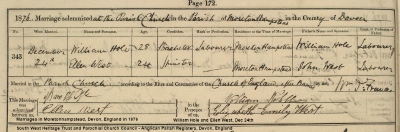 Page 172.
1876. Marriage solemnized at the Parish Church in the Parish of Moretonhampstead in the County of Devon
No. When Married. Name and Surname. Age. Condition. Rank or Profession. Residence at the Time of Marriage. Father's Name and Surname. Rank or Profession of Father.
343 December 24th William Hole 28 Bachelor Labourer Moreton Hampstead William Hole Labourer
Ellen West 24 Spinster Moreton Hampstead John West Labourer
Married in the Parish Church according to the Rites and Ceremonies of the Church of England
This Marriage was solemnized between us,
William Hole
Ellen West
in the Presence of us,
Elizabeth Emily West
Marriages in Moretonhampstead, Devon, England in 1876
William Hole and Ellen West, Dec 24th
South West Heritage Trust and Parochial Church Council - Anglican Parish Registers, Devon, England